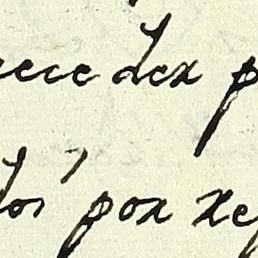 ece der p
los por re